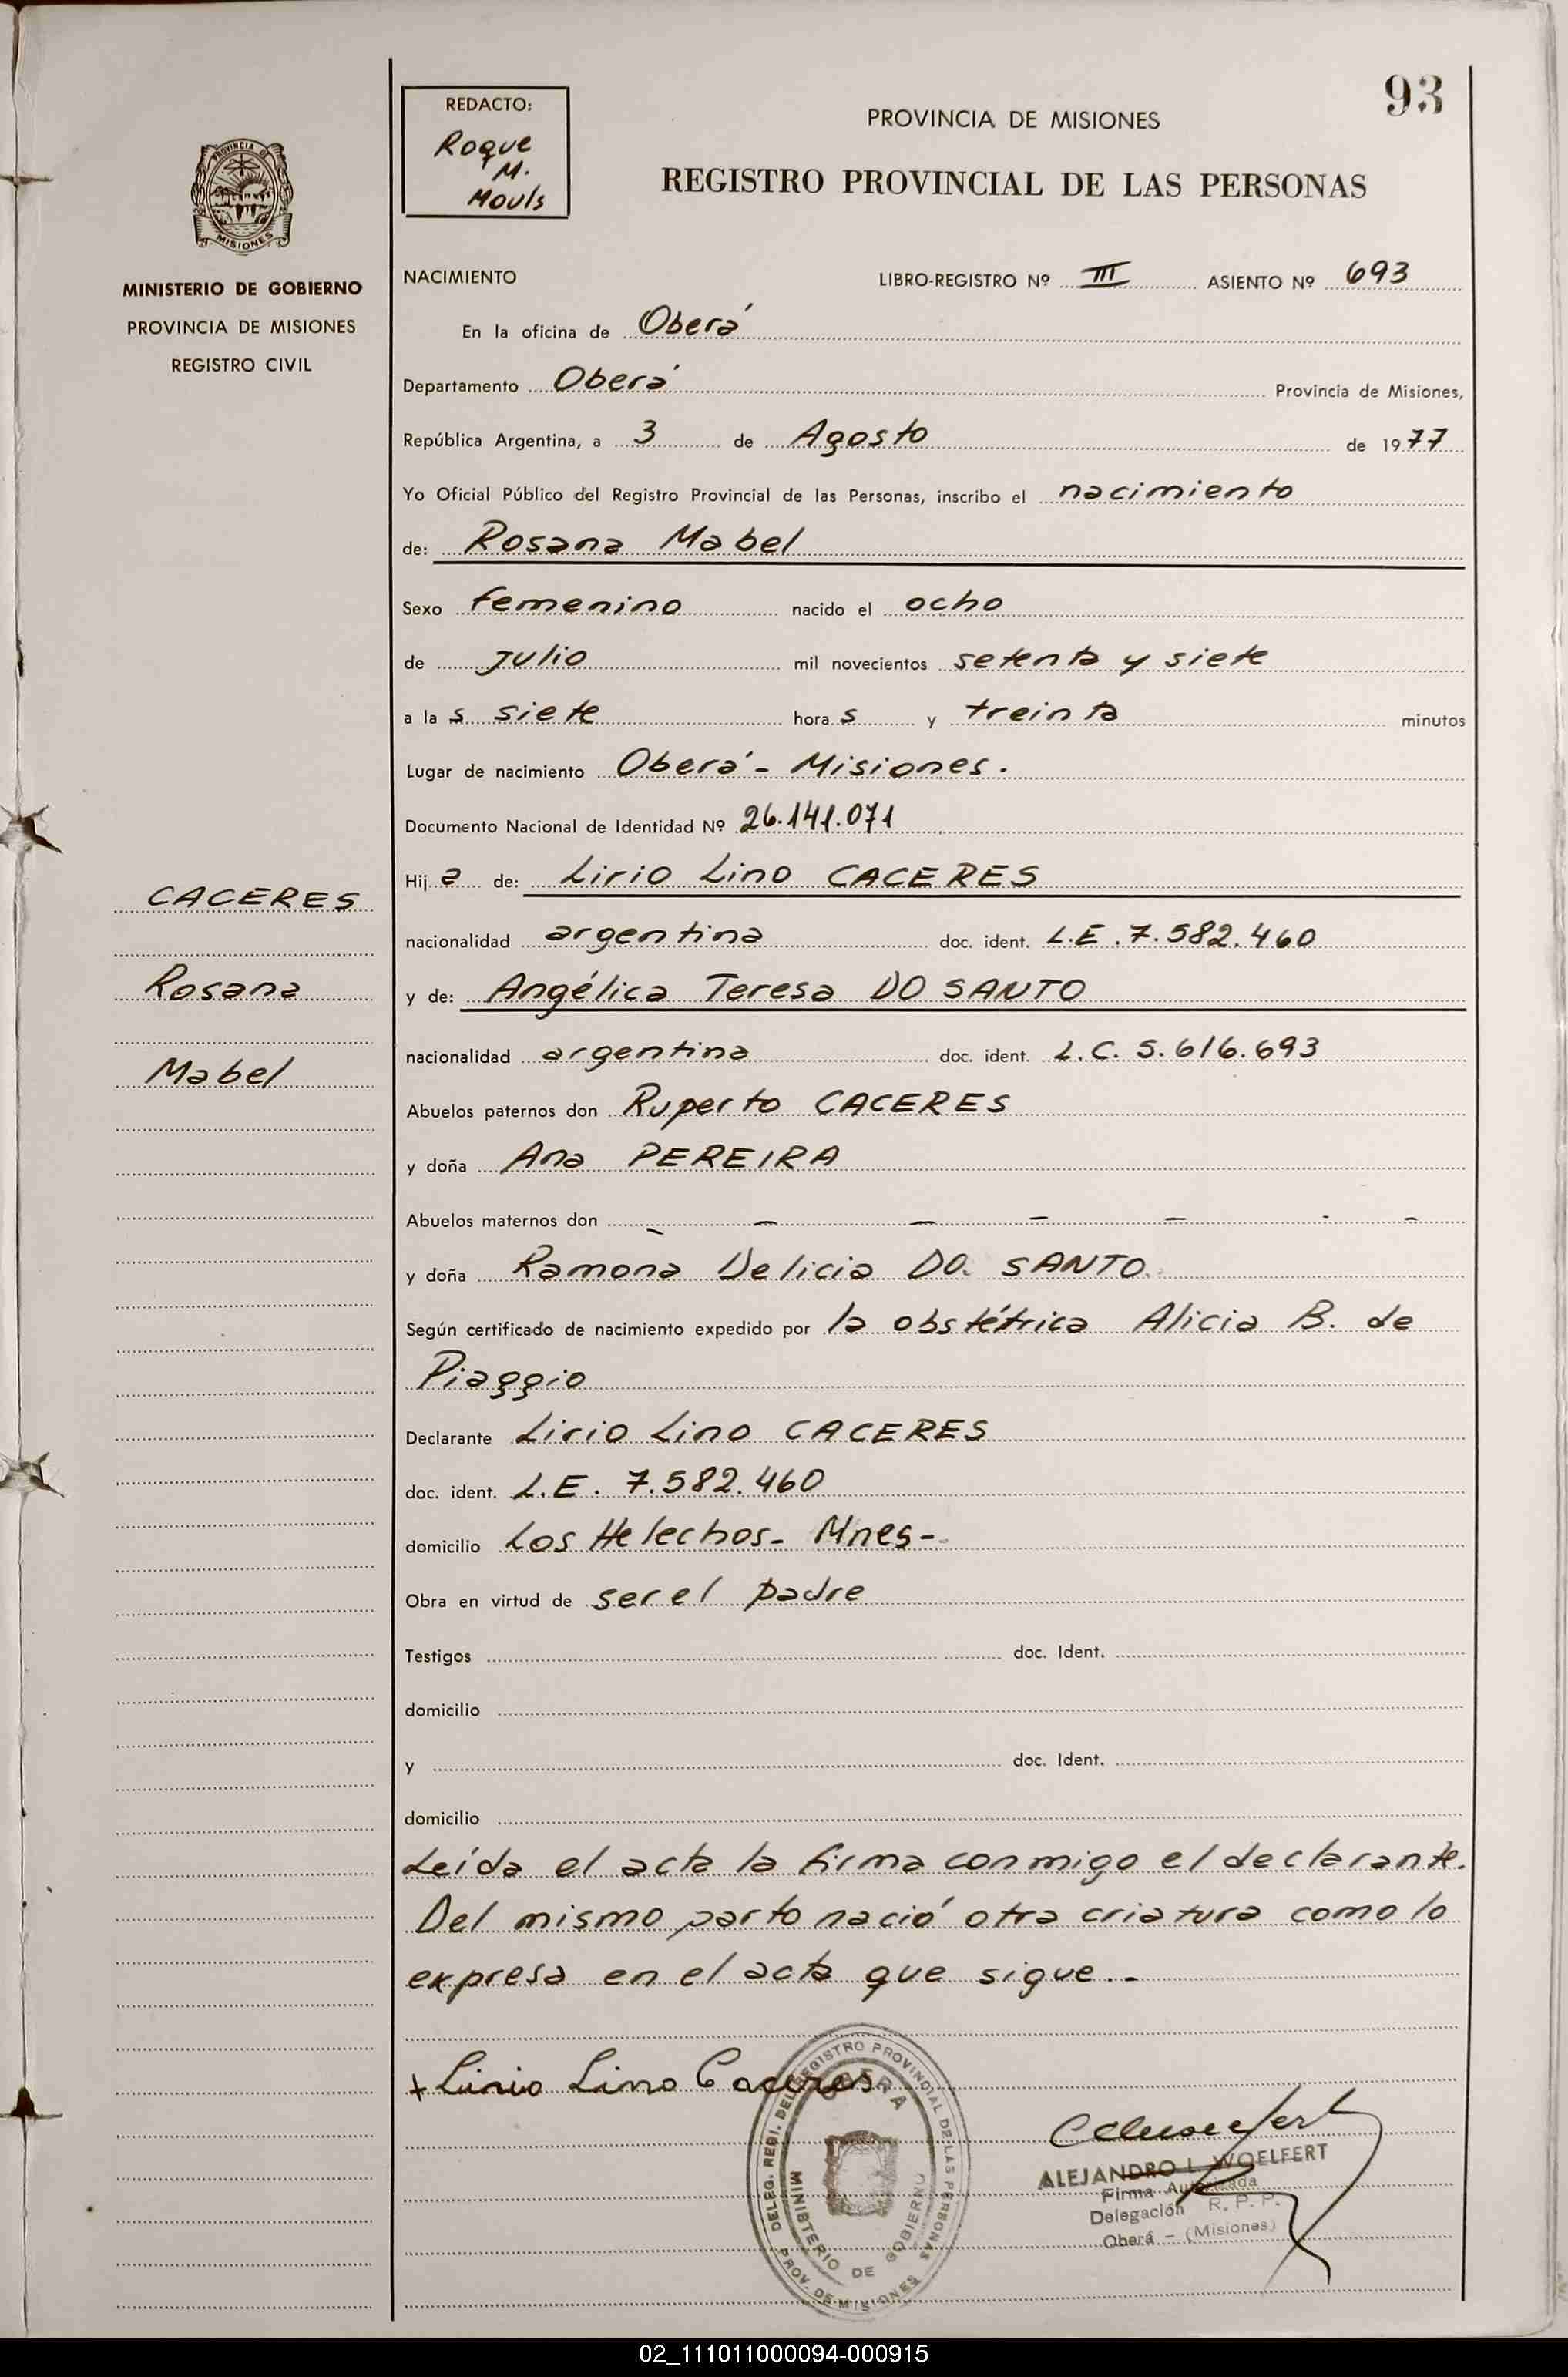 93
REDACTO:
Roque
M.
Mouls
PROVINCIA DE MISIONES
REGISTRO PROVINCIAL DE LAS PERSONAS
MISIONES
MINISTERIO DE GOBIERNO
PROVINCIA DE MISIONES
REGISTRO CIVIL
NACIMIENTO LIBRO-REGISTRO Nº III ASIENTO Nº 693
En la oficina de Oberá
Departamento Oberá Provincia de Misiones,
República Argentina, a 3 de Agosto de 1977
Yo Oficial Público del Registro Provincial de las Personas, inscribo el nacimiento
de: Rosana Mabel
Sexo femenino nacido el ocho
de julio mil novecientos setenta y siete
a las siete horas y treinta minutos
Lugar de nacimiento Oberá - Misiones.
Documento Nacional de Identidad Nº 26.141.071
Hija de: Lirio Lino CACERES
CACERES
nacionalidad argentina doc. ident. L.E. 7.582.460
Rosana
y de: Angélica Teresa DO SANTO
nacionalidad argentina doc. ident. L.C. 5.616.693
Mabel
Abuelos paternos don Ruperto CACERES
y doña Ana PEREIRA
Abuelos maternos don - - - - - - -
y doña Ramona Delicia DO SANTO.
Según certificado de nacimiento expedido por la obstétrica Alicia B. de
Piaggio
Declarante Lirio Lino CACERES
doc. ident. L.E. 7.582.460
domicilio Los Helechos - Mnes -
Obra en virtud de ser el padre
Testigos doc. Ident.
domicilio
y doc. Ident.
domicilio
Leída el acta la firma conmigo el declarante.
Del mismo parto nació otra criatura como lo
expresa en el acta que sigue..-
+ Lirio Lino Caceres
DELEG. REGI. DEL REGISTRO PROVINCIAL DE LAS PERSONAS
OBERA
MINISTERIO DE GOBIERNO
PROV. DE MISIONES
ALEJANDRO L. WOELFERT
Firma Autorizada
Delegación R. P. P.
Oberá - (Misiones)
02_111011000094-000915